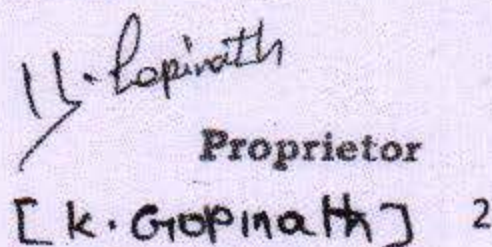 K. Gopinath
Proprietor
[K. Gopinath] 2